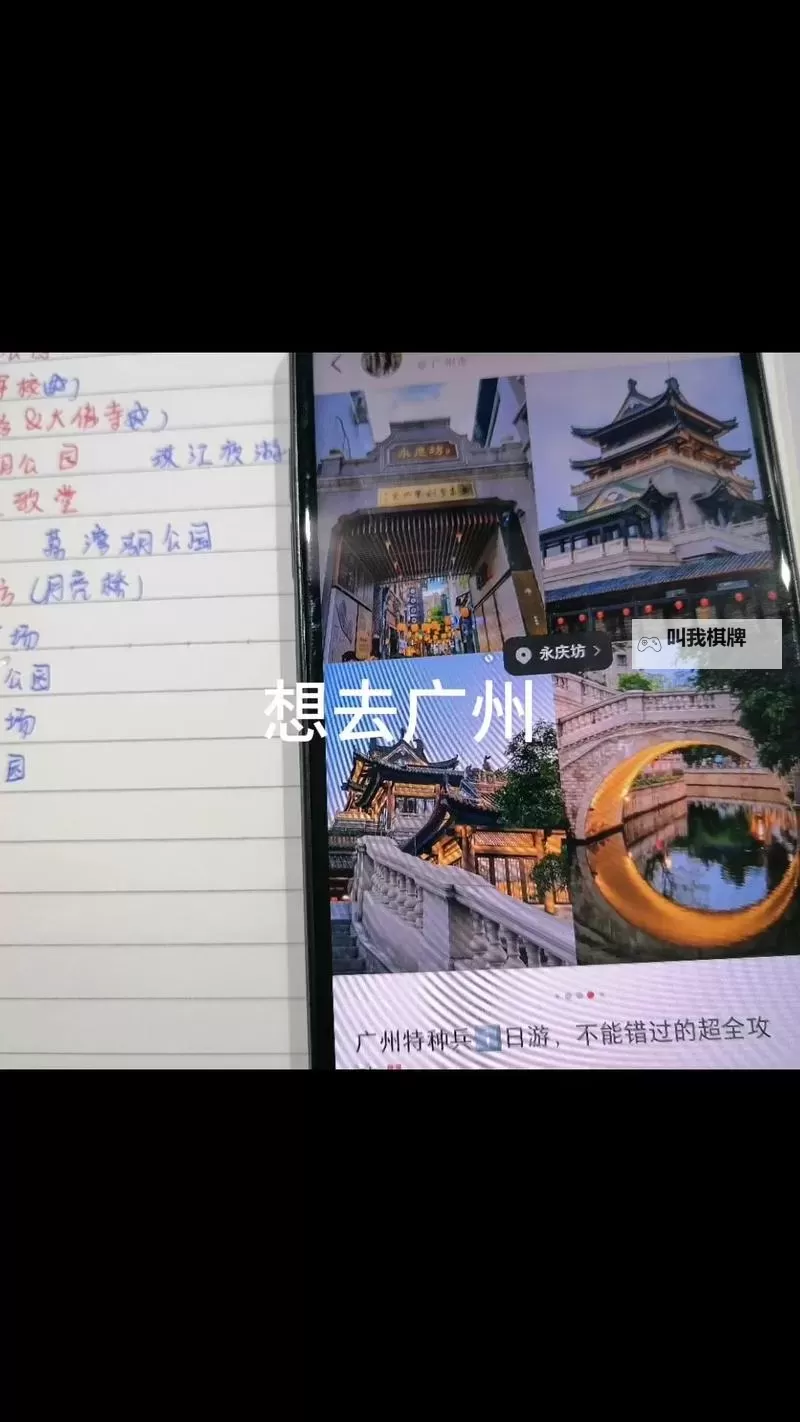 校
& 大佛寺
公园 珠江夜游
歌堂
荔湾湖公园
(月亮桥)
场
公园
场
园
广州市
永庆坊
永庆坊 >
叫我棋牌
想去广州
广州特种兵1日游，不能错过的超全攻